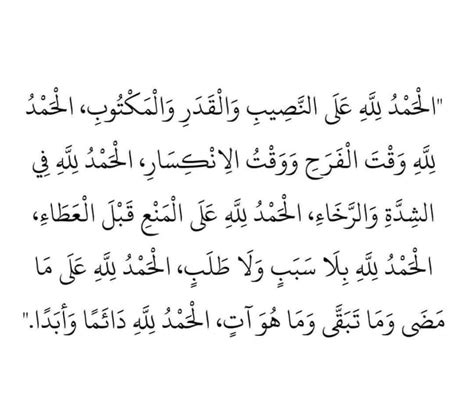 "الْحَمْدُ لِلَّهِ عَلَى النَّصِيبِ وَالْقَدَرِ وَالْمَكْتُوبِ، الْحَمْدُ
لِلَّهِ وَقْتَ الْفَرَحِ وَوَقْتُ الِانْكِسَارِ، الْحَمْدُ لِلَّهِ فِي
الشِّدَّةِ وَالرَّخَاءِ، الْحَمْدُ لِلَّهِ عَلَى الْمَنْعِ قَبْلَ الْعَطَاءِ،
الْحَمْدُ لِلَّهِ بِلَا سَبَبٍ وَلَا طَلَبٍ، الْحَمْدُ لِلَّهِ عَلَى مَا
مَضَى وَمَا تَبَقَّى وَمَا هُوَ آتٍ، الْحَمْدُ لِلَّهِ دَائَمًا وَأَبَدًا."